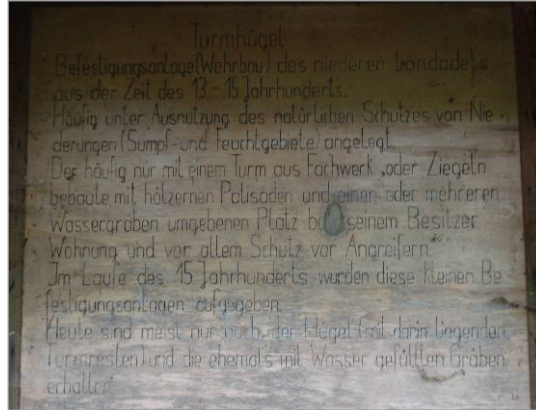 Turmhügel
Befestigungsanlage (Wehrbau) des niederen Landadels
aus der Zeit des 13.-15. Jahrhunderts.
Häufig unter Ausnutzung des natürlichen Schutzes von Nie-
derungen (Sumpf- und Feuchtgebiete) angelegt.
Der häufig nur mit einem Turm aus Fachwerk oder Ziegeln
bebaute mit hölzernen Palisaden und einen oder mehreren
Wassergräben umgebenen Platz bot seinem Besitzer
Wohnung und vor allem Schutz vor Angreifern.
Im Laufe des 15. Jahrhunderts wurden diese kleinen Be
festigungsanlagen aufgegeben.
Heute sind meist nur noch der Hügel (mit darin liegenden
Turmresten) und die ehemals mit Wasser gefüllten Gräben
erhalten.